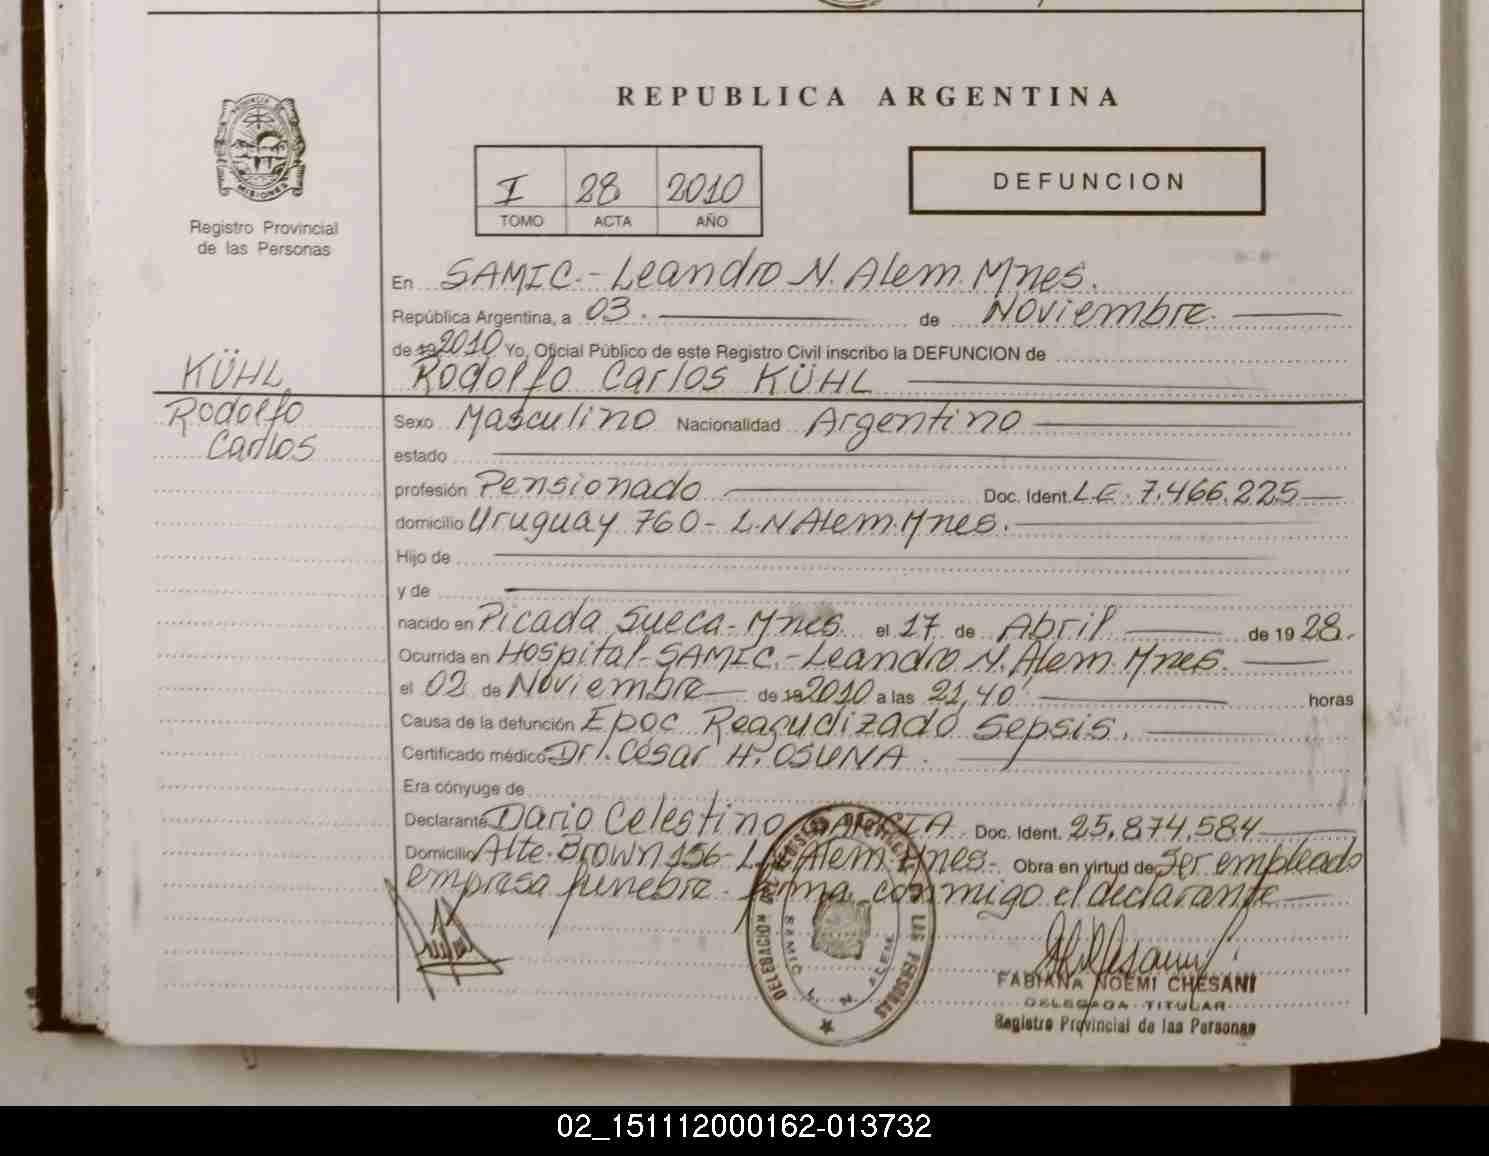 REPUBLICA ARGENTINA
I 28 2010
TOMO ACTA AÑO
DEFUNCION
MISIONES
Registro Provincial
de las Personas
KÜHL
Rodolfo
Carlos
En SAMIC.- Leandro N. Alem. Mnes.
República Argentina, a 03. de Noviembre.
de 19 2010 Yo, Oficial Público de este Registro Civil inscribo la DEFUNCION de
Rodolfo Carlos KÜHL
Sexo Masculino Nacionalidad Argentino
estado
profesión Pensionado Doc. Ident. L.E. 7.466.225
domicilio Uruguay 760- L.N Alem. Mnes.
Hijo de
y de
nacido en Picada Sueca- Mnes el 17 de Abril de 19 28.
Ocurrida en Hospital- SAMIC.- Leandro N. Alem. Mnes.
el 02 de Noviembre de 19 2010 a las 21,40' horas
Causa de la defunción Epoc Reagudizado Sepsis.
Certificado médico Dr. César H. OSUNA.
Era cónyuge de
Declarante Dario Celestino Doc. Ident. 25.874.584
Domicilio Alte. Brown 156- L.N. Alem. Mnes-. Obra en virtud de Ser empleado
empresa funebre. firma conmigo el declarante
DELEGACION DE LAS PERSONAS
SAMIC L. N. ALEM
FABIANA NOEMI CHESANI
DELEGADA TITULAR
Registro Provincial de las Personas
02_151112000162-013732